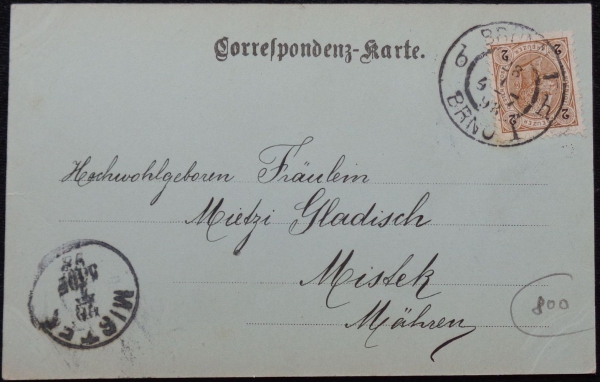 Correspondenz-Karte.
BRNO 1
b
h
2
2
2
Hochwohlgeboren Fräulein
Mietzi Gladisch
Mistek
Mähren
800